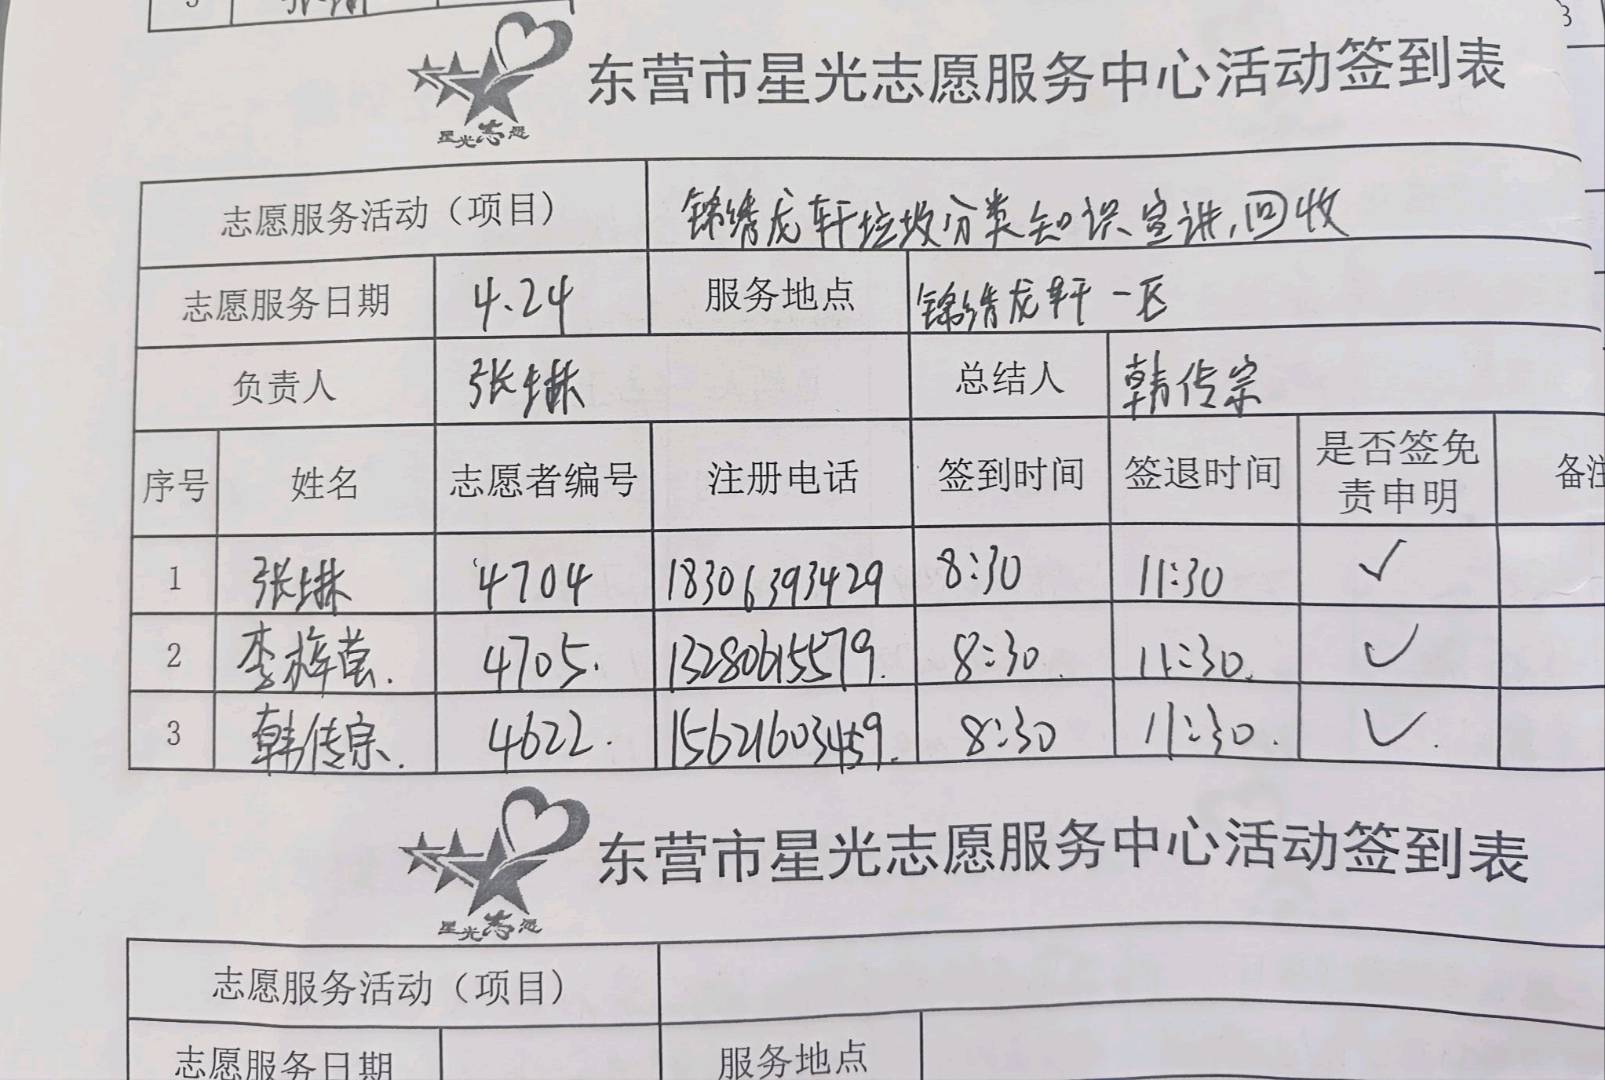 星光志愿
东营市星光志愿服务中心活动签到表
志愿服务活动（项目） 锦绣龙轩垃圾分类知识宣讲,回收
志愿服务日期 4.24 服务地点 锦绣龙轩一区
负责人 张琳 总结人 韩传宗
序号 姓名 志愿者编号 注册电话 签到时间 签退时间 是否签免责申明 备注
1 张琳 4704 18306393429 8:30 11:30 ✓
2 李梅莹. 4705. 13280615579. 8:30. 11:30. ✓
3 韩传宗. 4622. 15621603459. 8:30 11:30. ✓.
星光志愿
东营市星光志愿服务中心活动签到表
志愿服务活动（项目）
志愿服务日期 服务地点